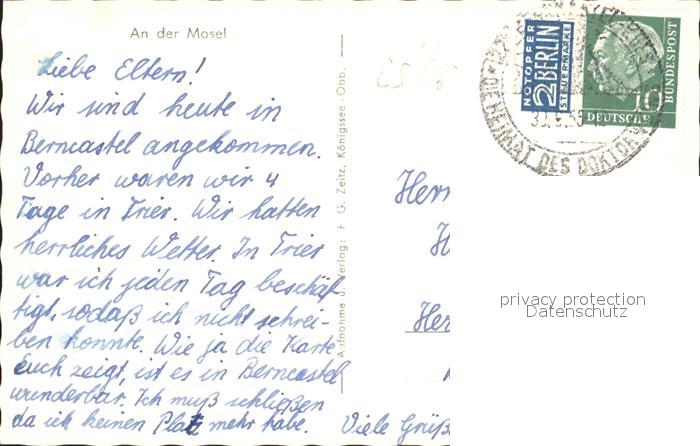 An der Mosel
Liebe Eltern!
Wir sind heute in
Berncastel angekommen.
Vorher waren wir 4
Tage in Trier. Wir hatten
herrliches Wetter. In Trier
war ich jeden Tag beschäf
tigt, sodaß ich nicht schrei-
ben konnte. Wie ja die Karte
Euch zeigt, ist es in Berncastel
wunderbar. Ich muß schließen
da ich keinen Platz mehr habe.
Viele Grüß
Aufnahme u. Verlag: F. G. Zeitz, Königssee-Obb.
NOTOPFER
2 BERLIN
STEUERMARKE
10
DEUTSCHE
BUNDESPOST
HEIMAT DES DOKTOR
Her
privacy protection
Datenschutz